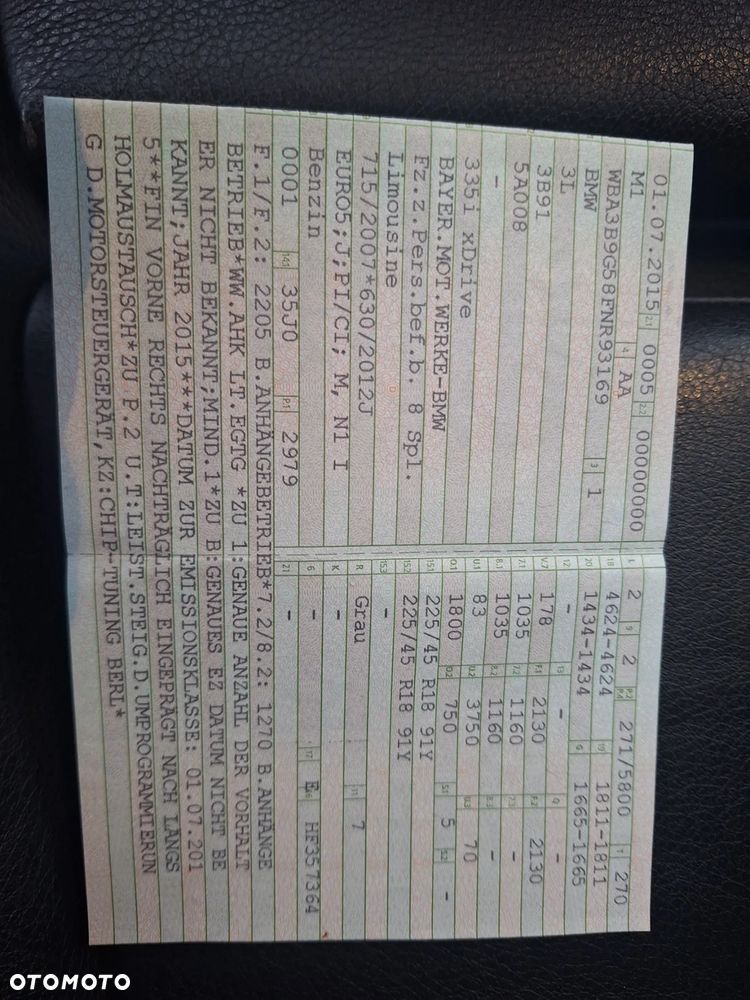 01.07.2015 2.1 0005 2.2 00000000
M1 4 AA
WBA3B9G58FNR93169 3 1
BMW
3L
3B91
5A008
-
335i xDrive
BAYER.MOT.WERKE-BMW
Fz.z.Pers.bef.b. 8 Spl.
Limousine
715/2007*630/2012J
EURO5;J;PI/CI; M, N1 I
Benzin
0001 14.1 35J0 P.1 2979
L 2 9 2 P.2 P.4 271/5800 T 270
18 4624-4624 19 1811-1811
20 1434-1434 G 1665-1665
12 - 13 - Q -
V.7 178 F.1 2130 F.2 2130
7.1 1035 7.2 1160 7.3 -
8.1 1035 8.2 1160 8.3 -
U.1 83 U.2 3750 U.3 70
O.1 1800 O.2 750 S.1 5 S.2 -
15.1 225/45 R18 91Y
15.2 225/45 R18 91Y
15.3 -
R Grau 11 7
K -
6 - 17 E 16 HF357364
21 -
F.1/F.2: 2205 B.ANHÄNGEBETRIEB*7.2/8.2: 1270 B.ANHÄNGE
BETRIEB*WW.AHK LT.EGTG *ZU 1:GENAUE ANZAHL DER VORHALT
ER NICHT BEKANNT;MIND.1*ZU B:GENAUES EZ DATUM NICHT BE
KANNT;JAHR 2015***DATUM ZUR EMISSIONSKLASSE: 01.07.201
5**FIN VORNE RECHTS NACHTRÄGLICH EINGEPRÄGT NACH LÄNGS
HOLMAUSTAUSCH*ZU P.2 U.T:LEIST.STEIG.D.UMPROGRAMMIERUN
G D.MOTORSTEUERGERÄT,KZ:CHIP-TUNING BERL*
OTOMOTO